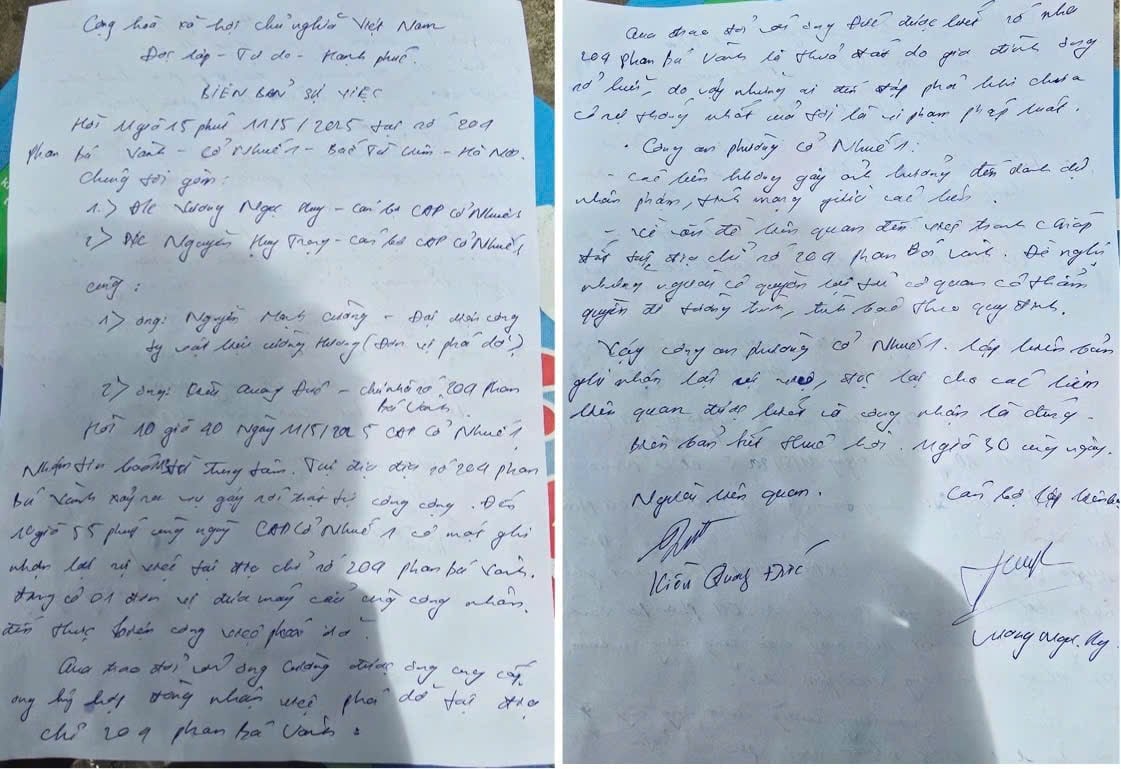 Cộng hòa xã hội chủ nghĩa Việt Nam
Độc lập - Tự do - Hạnh phúc.
BIÊN BẢN SỰ VIỆC
Hồi 11 giờ 15 phút 11/5/2025 tại số 209
Phan Bá Vành - Cổ Nhuế 1 - Bắc Từ Liêm - Hà Nội.
Chúng tôi gồm:
1.> Đ/c Vương Ngọc Huy - Cán bộ CAP Cổ Nhuế 1
2> Đ/c Nguyễn Huy Trọng - Cán bộ CAP Cổ Nhuế 1
cùng:
1> ông: Nguyễn Mạnh Cường - Đại diện công
ty vật liệu Cường Hương (Đơn vị phá dỡ)
2> ông: Kiều Quang Đức - chủ nhà số 209 Phan
Bá Vành.
Hồi 10 giờ 40 Ngày 11/5/2025 CAP Cổ Nhuế 1
Nhận tin báo trung tâm. Tại địa số 209 phan
Bá Vành xảy ra vụ gây rối trật tự công cộng. Đến
10 giờ 55 phút cùng ngày CAP Cổ Nhuế 1 có mặt ghi
nhận lại sự việc tại địa chỉ số 209 phan bá vành.
đang có 01 đơn vị đưa máy cẩu cùng công nhân.
đến thực hiện công việc phá dỡ.
Qua trao đổi với ông Cường được ông cung cấp,
ông ký hợp đồng nhận việc phá dỡ tại địa
chỉ 209 phan bá vành.
Qua trao đổi với ông Đức được biết số nhà
209 phan bá vành là thửa đất do gia đình ông
sở hữu, do vậy những ai đến đập phá khi chưa
có sự thống nhất của tôi là vi phạm pháp luật.
. Công an phường Cổ Nhuế 1:
- Các bên không gây ảnh hưởng đến danh dự
nhân phẩm, tính mạng giữa các bên.
- Về vấn đề liên quan đến việc tranh chấp
đất tại địa chỉ số 209 phan Bá Vành. Đề nghị
những người có quyền lợi tới cơ quan có thẩm
quyền để tường trình, trình báo theo quy định.
Vậy công an phường Cổ Nhuế 1. lập biên bản
ghi nhận lại sự việc, đọc lại cho các bên
liên quan được biết và công nhận là đúng.
Biên bản kết thúc hồi. 11 giờ 30 cùng ngày.
Người liên quan. Cán bộ lập biên bản
Kiều Quang Đức
Vương Ngọc Huy